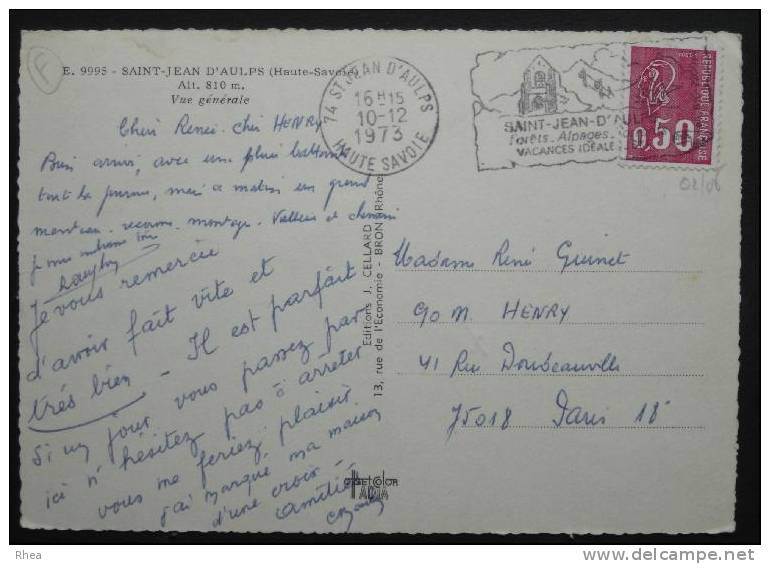 E. 9995 - SAINT-JEAN D'AULPS (Haute-Savoie)
Alt. 810 m.
Vue générale
F
74 ST JEAN D'AULPS
16H15
10-12
1973
HAUTE SAVOIE
SAINT-JEAN-D'AUL
forêts. Alpages
VACANCES IDEALE
REPUBLIQUE FRANÇAISE
0,50
02/08
Cheri Renée. Cher HENRY
Bien arrivé, avec une pluie battante
tout la journee, ce matin un grand
manteau recouvre montagne Vallées et
Je vous remercie
d'avoir fait vite et
très bien - Il est parfait
Si un jour vous passez par
ici n'hésitez pas à arrêter
vous me feriez plaisir
j'ai marqué ma maison
d'une croix -
amitiés
Editions J. CELLARD
13, rue de l'Economie - BRON (Rhône)
Madame René Guinet
90 M. HENRY
41 Rue Doudeauville
75018 Paris 18
offset COLOR
Rhea
delcampe.net